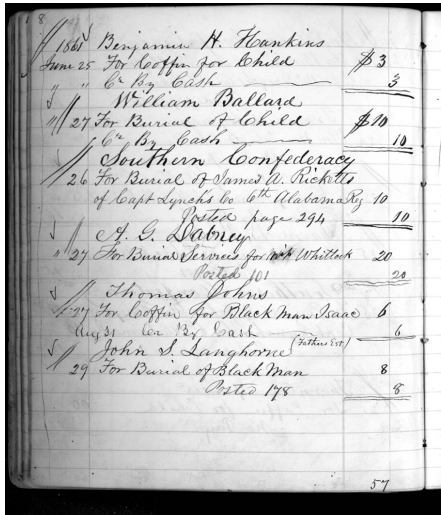 8
1861 Benjamin H. Hankins
June 25 For Coffin for Child $3
" " Cr By Cash 3
William Ballard
" 27 For Burial of Child $10
" Cr By Cash 10
Southern Confederacy
26 For Burial of James A. Ricketts
of Capt Lynchs Co 6th Alabama Reg 10
Posted page 294 10
A. G. Dabney
" 27 For Burial Services for Whitlock 20
Posted 101 20
Thomas Johns
" 27 For Coffin for Black Man Isaac 6
Aug 31 Cr By Cash 6
John S. Langhorne (Fathers Est)
29 For Burial of Black Man 8
Posted 178 8
57